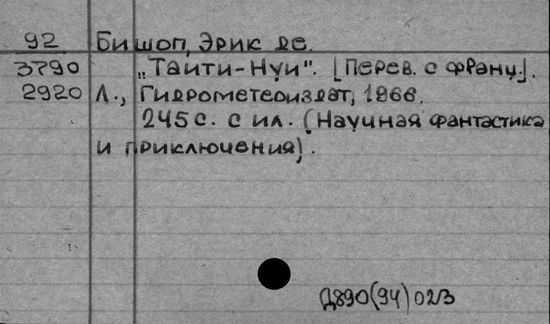 92 Бишоп, Эрик де.
3790 „Таити-Нуи". [Перев. с франц.].
2920 Л., Гидрометеоиздат, 1966.
245 с. с ил. (Научная фантастика
и приключения).
Д890(94)023